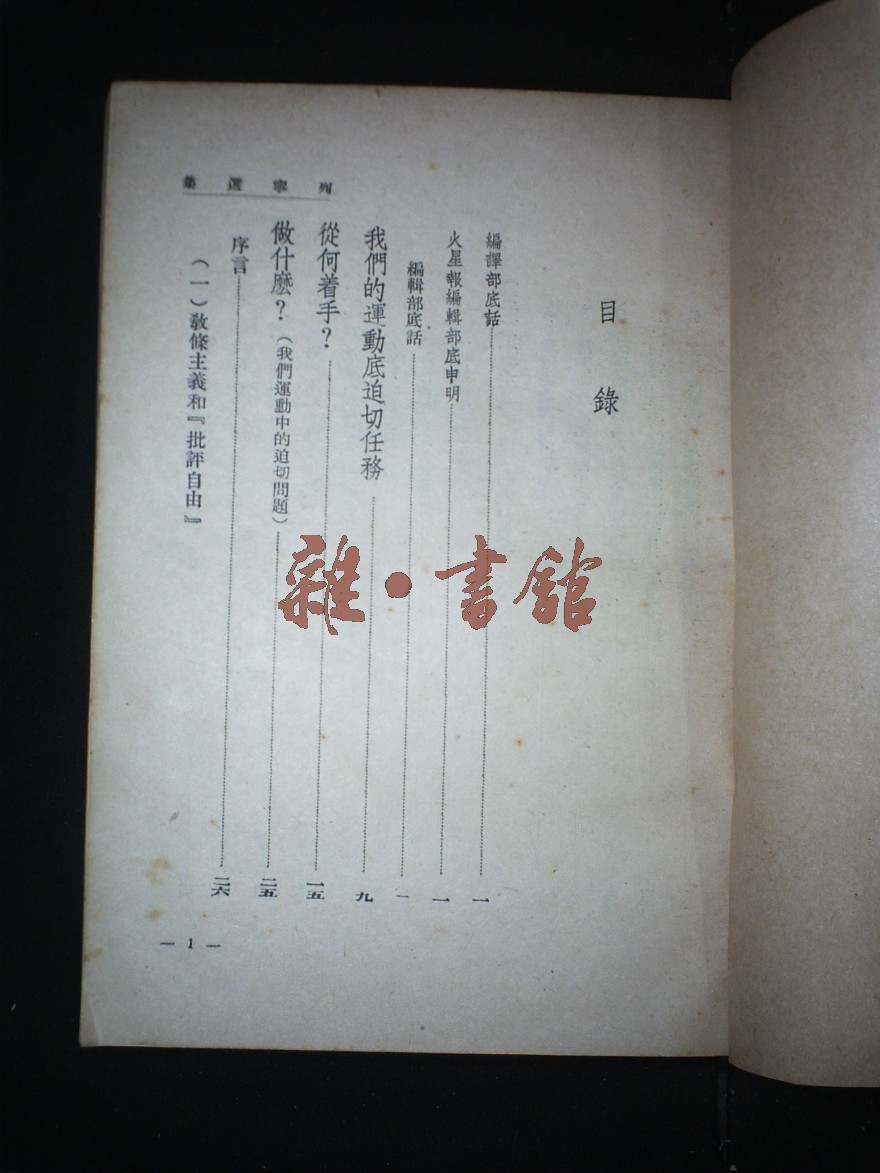 列寧選集
目錄
編譯部底話 一
火星報編輯部底申明 一
編輯部底話 一
我們的運動底迫切任務 九
從何着手？ 一五
做什麽？（我們運動中的迫切問題） 二五
序言 二六
（一）教條主義和『批評自由』
— 1 —
雜·書舘